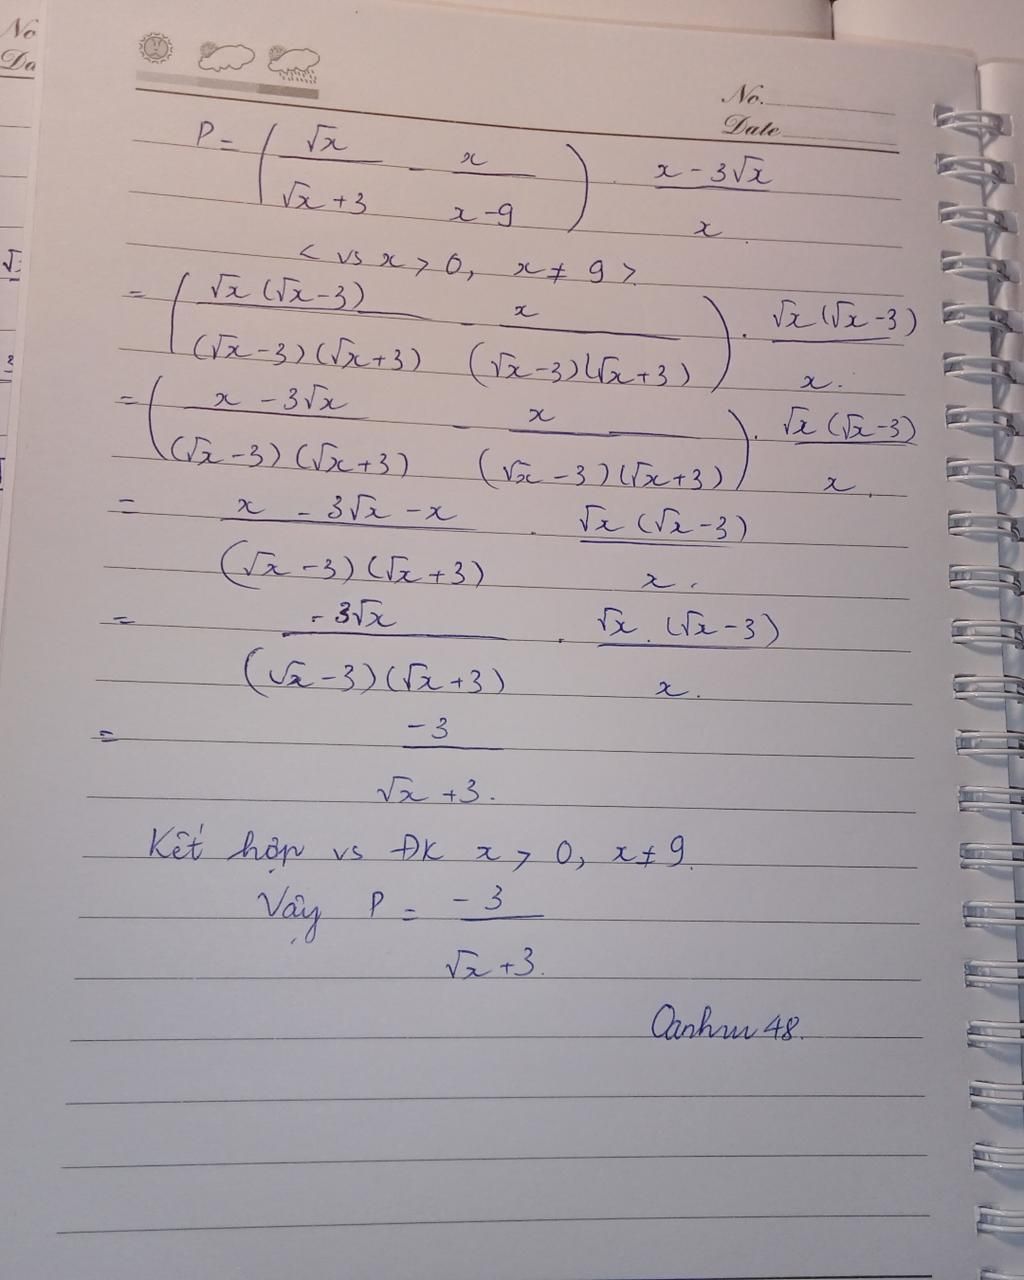 No
Da
No.
Date
P = ( √x / (√x + 3) - x / (x - 9) ) . (x - 3√x) / x
< vs x > 0, x ≠ 9 >
= ( √x (√x - 3) / (√x - 3)(√x + 3) - x / (√x - 3)(√x + 3) ) . √x (√x - 3) / x.
= ( x - 3√x / (√x - 3)(√x + 3) - x / (√x - 3)(√x + 3) ) . √x (√x - 3) / x.
= x - 3√x - x / (√x - 3)(√x + 3) . √x (√x - 3) / x.
= -3√x / (√x - 3)(√x + 3) . √x . (√x - 3) / x.
= -3 / √x + 3.
Kết hợp vs ĐK x > 0, x ≠ 9.
Vậy P = -3 / √x + 3.